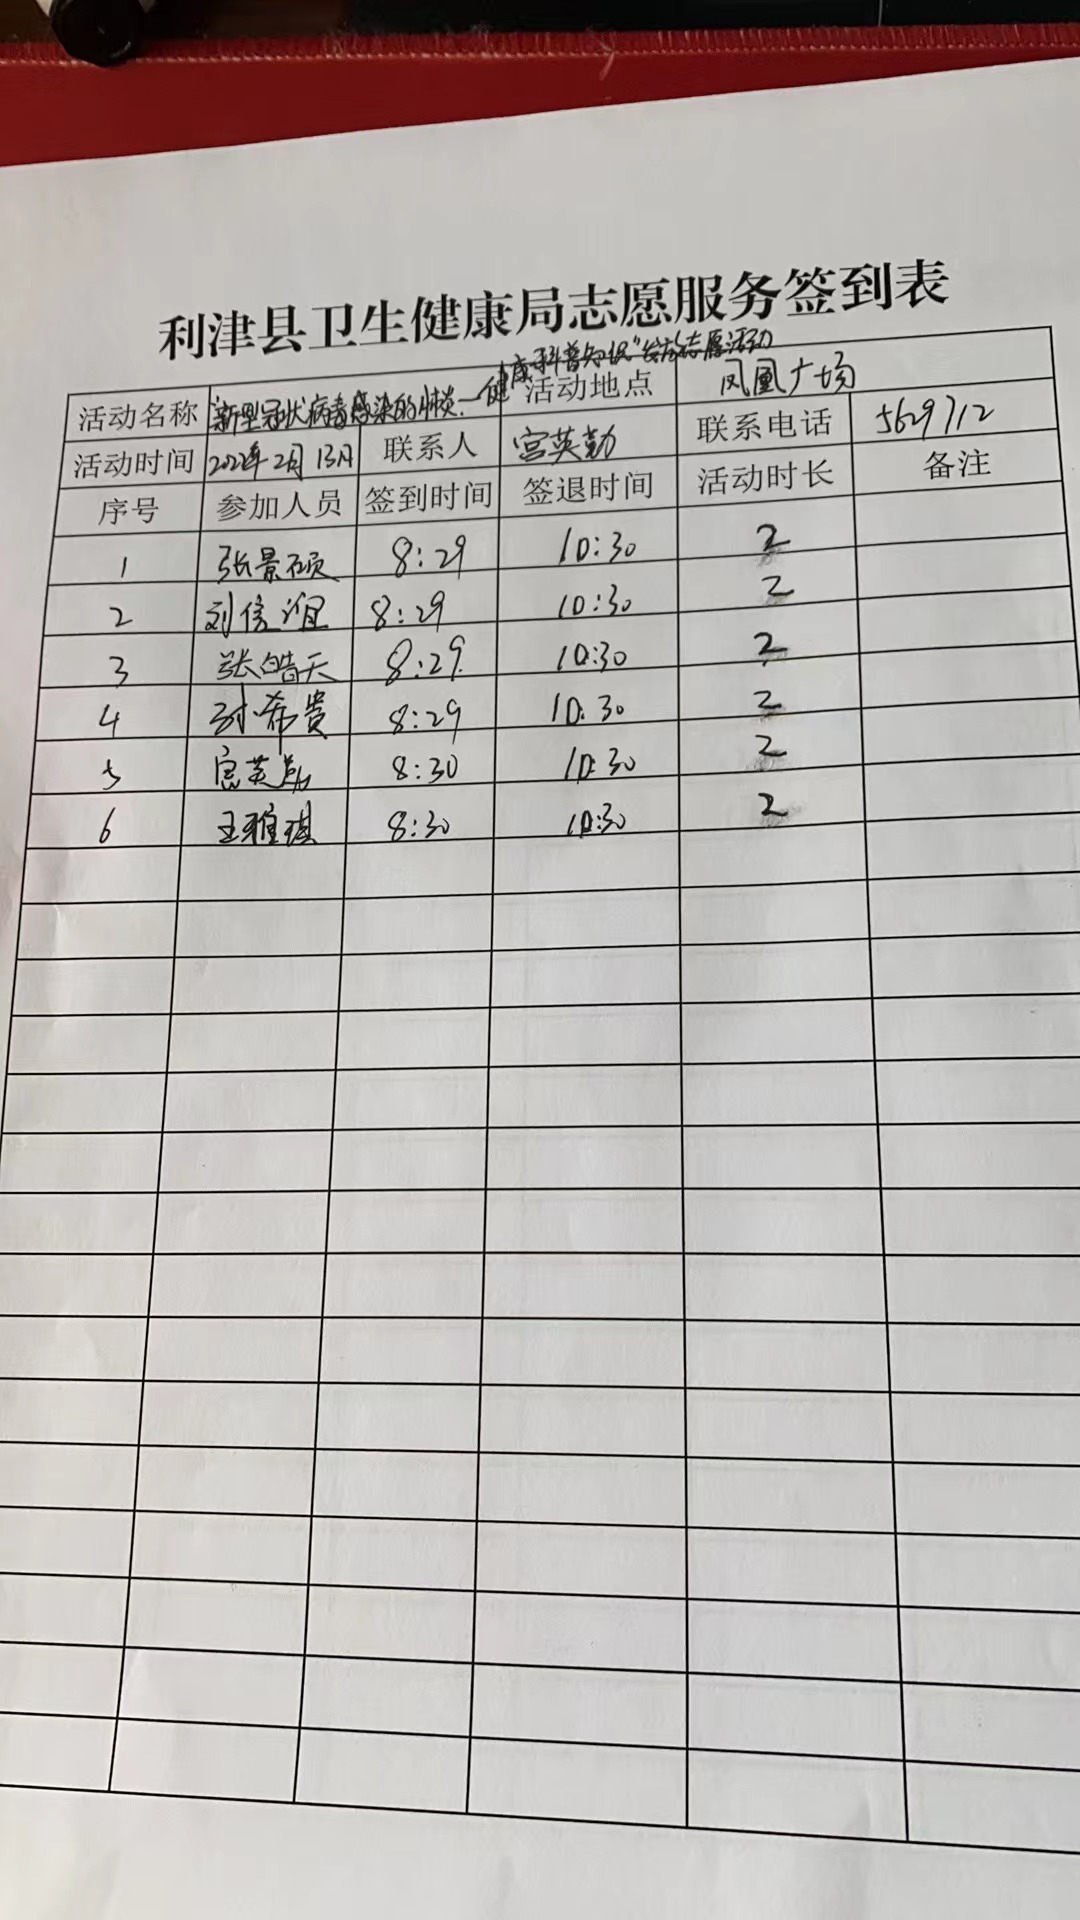 利津县卫生健康局志愿服务签到表
活动名称 新型冠状病毒感染的肺炎 健康科普知识"发放志愿活动 活动地点 凤凰广场
活动时间 2022年2月13日 联系人 宫英勤 联系电话 5629712
序号 参加人员 签到时间 签退时间 活动时长 备注
1 张景硕 8:29 10:30 2
2 刘信谊 8:29 10:30 2
3 张皓天 8:29 10:30 2
4 希贵 8:29 10:30 2
5 宫英勤 8:30 10:30 2
6 王雅琪 8:30 10:30 2